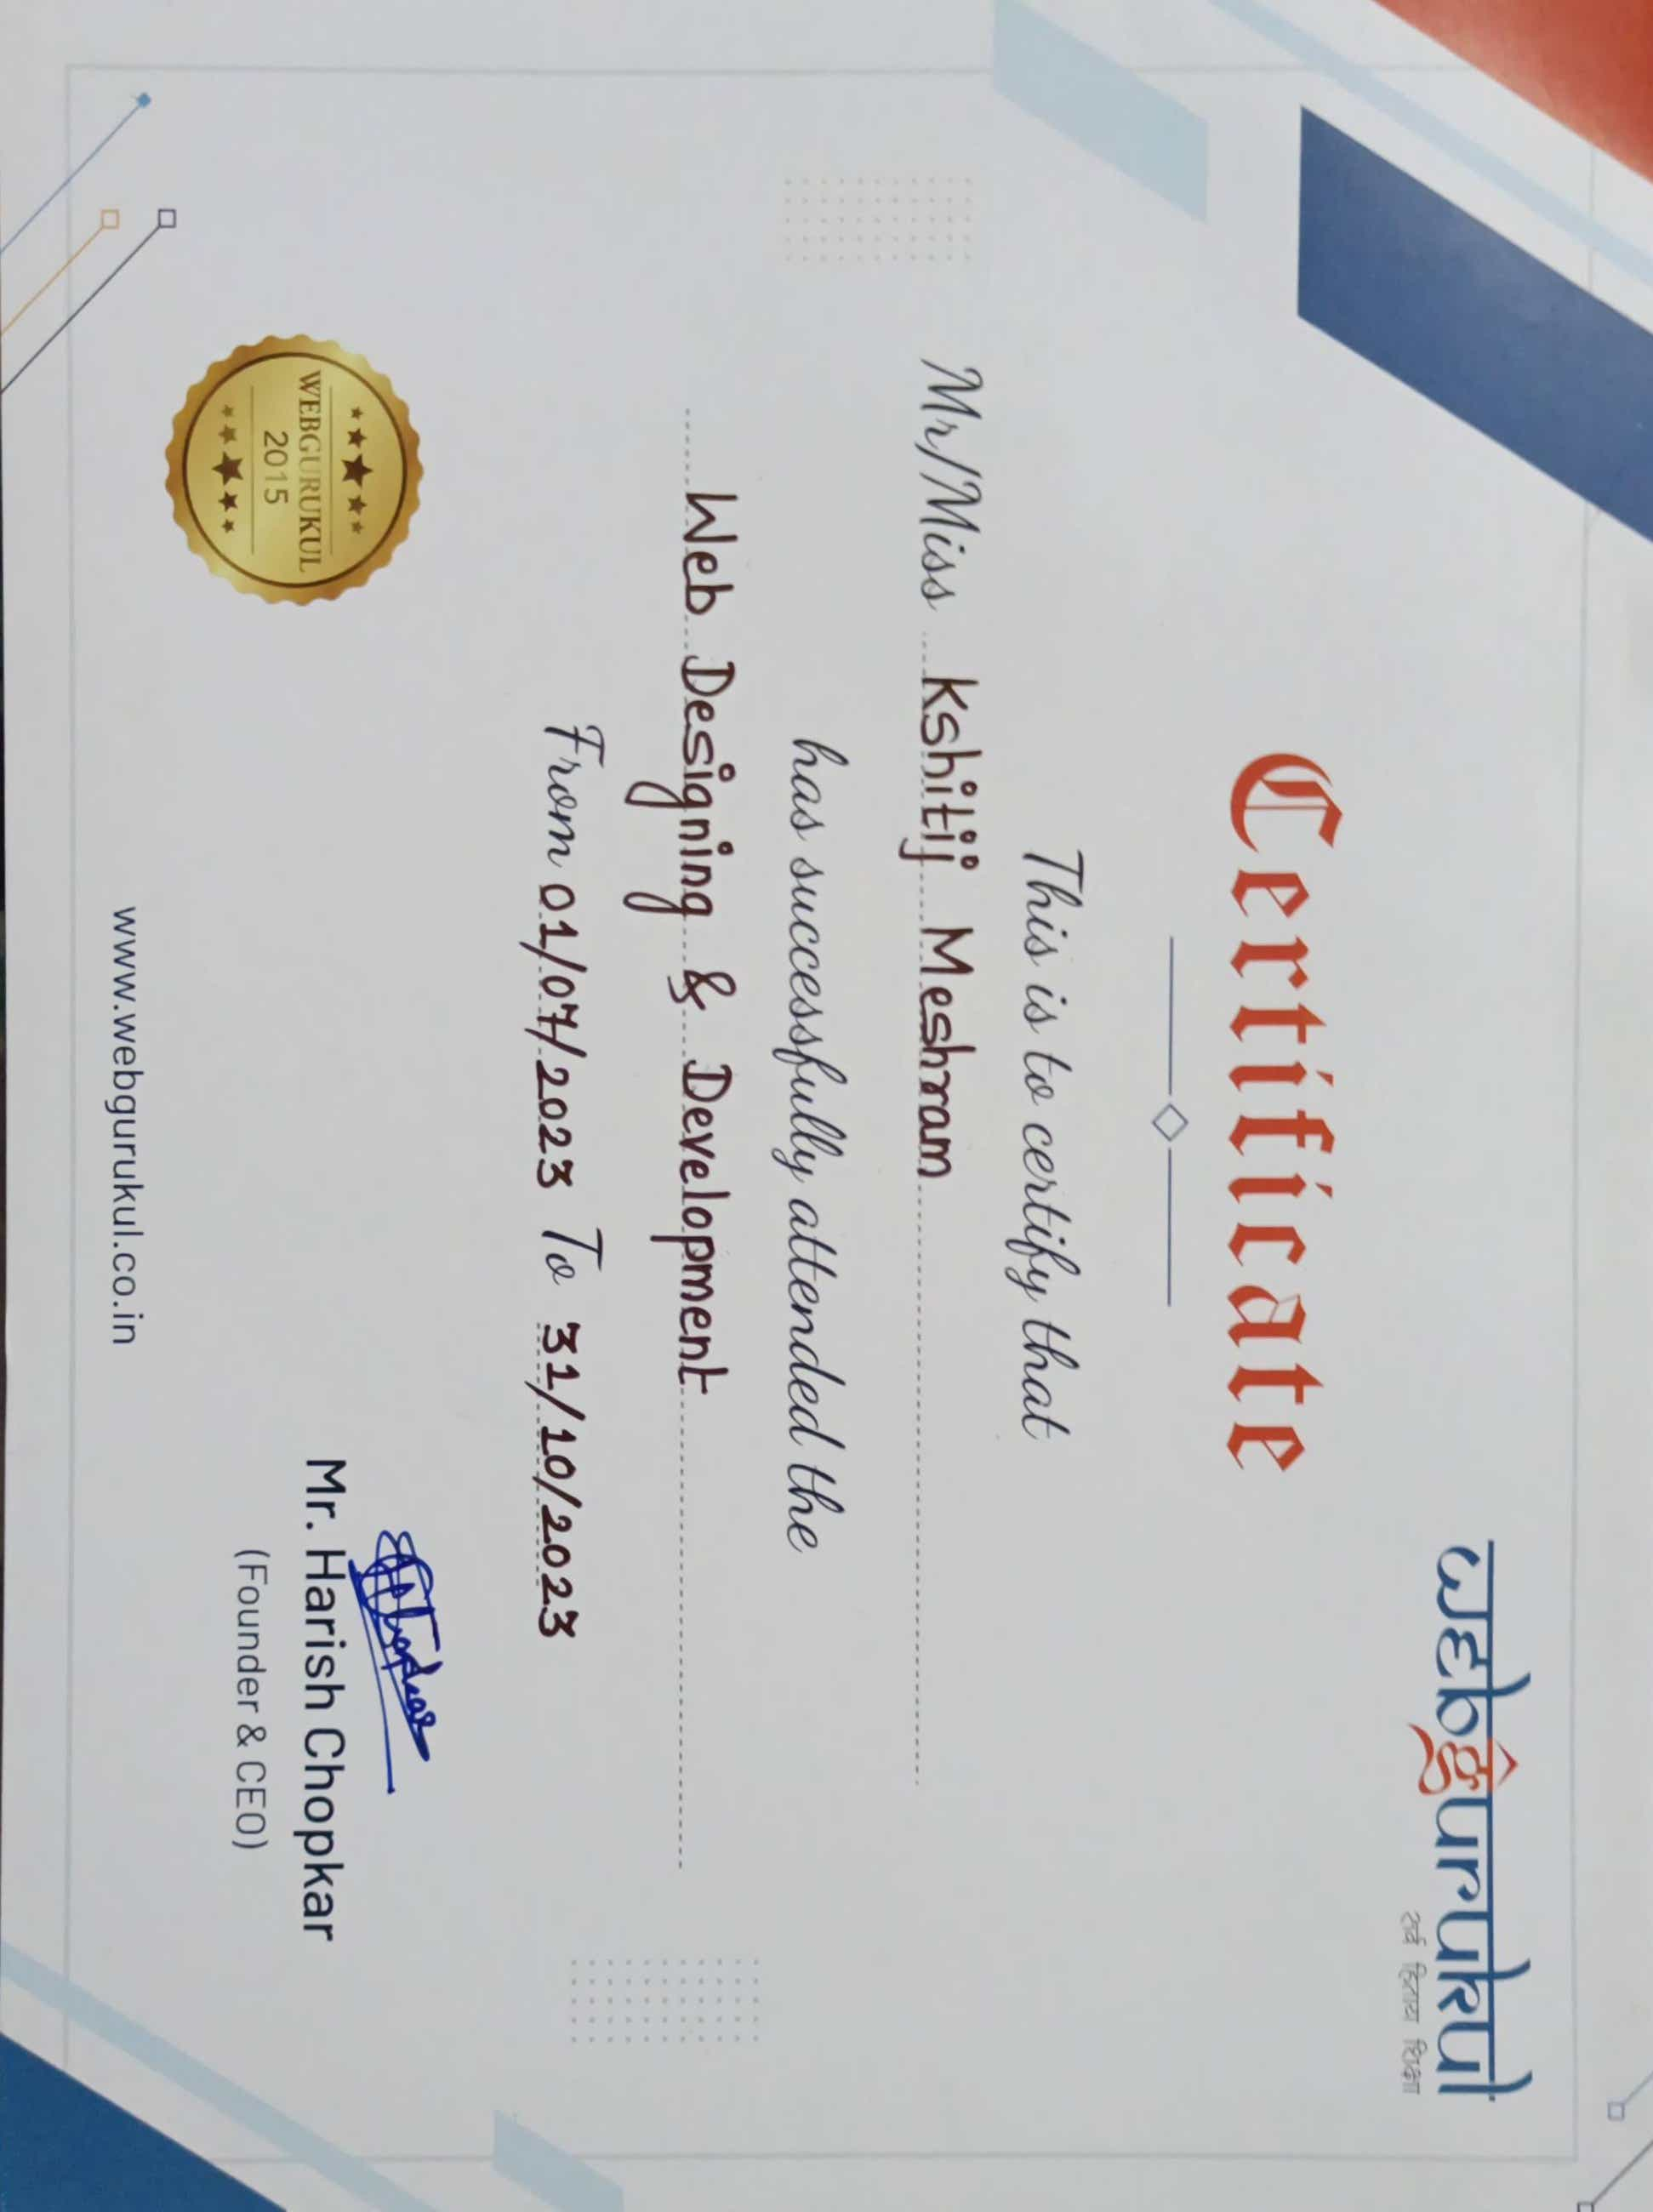 webgurukul
सर्व हिताय शिक्षा
Certificate
This is to certify that
Mr/Miss Kshitij Meshram
has successfully attended the
Web Designing & Development
From 01/07/2023 To 31/10/2023
WEBGURUKUL
2015
Mr. Harish Chopkar
(Founder & CEO)
www.webgurukul.co.in